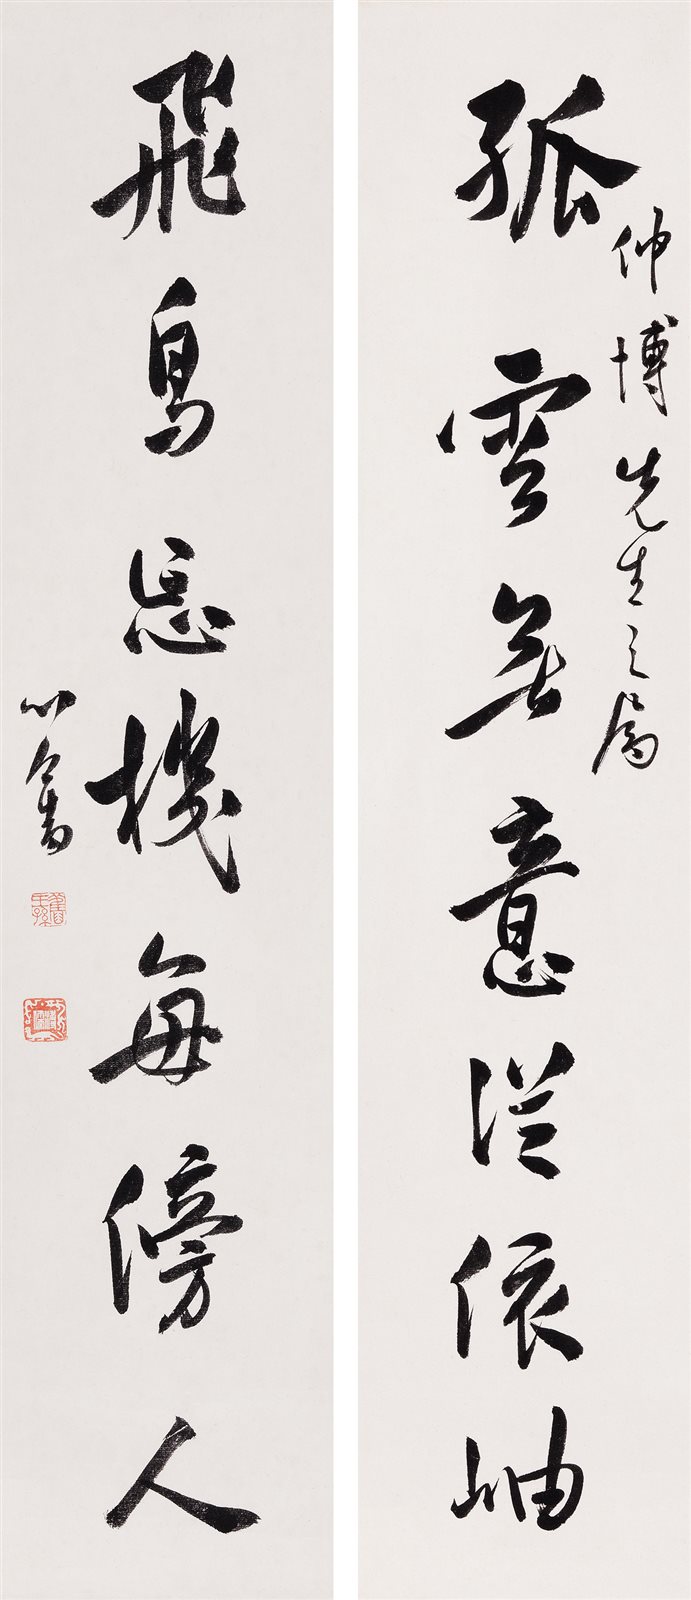 仲博先生之屬
孤雲無意從依岫
飛鳥忘機每傍人
心畬
舊王孫